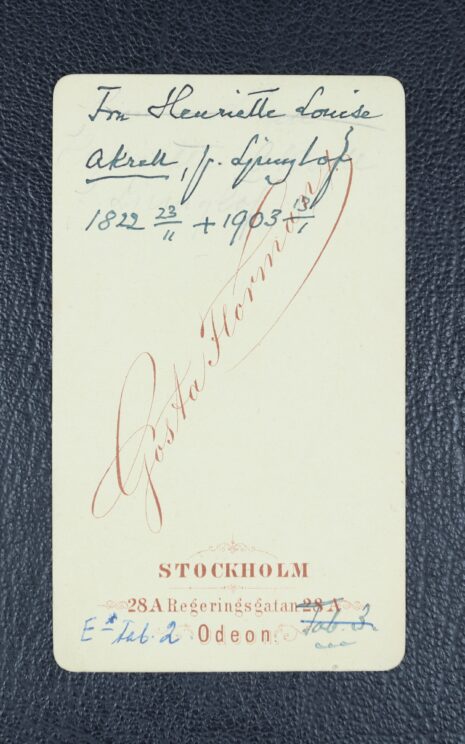 Fru Henriette Louise
Akrell, f. Ljunglöf
1822 23/11 + 1903 13/1
Gösta Florman
STOCKHOLM
28A Regeringsgatan 28A
Odeon.
E* Tab. 2
Tab. 3.